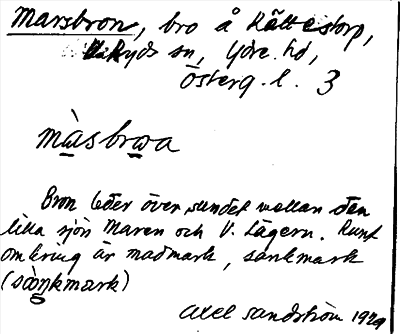 Marsbron, bro å Rättestorp,
Ryds sn, Ydre hd,
Österg. l. 3
màsbrωa
Bron leder över sundet mellan den
lilla sjön Maren och V. Lägern. Runt
omkring är madmark, sankmark
(sòŋkmark)
Axel Sandström 1929